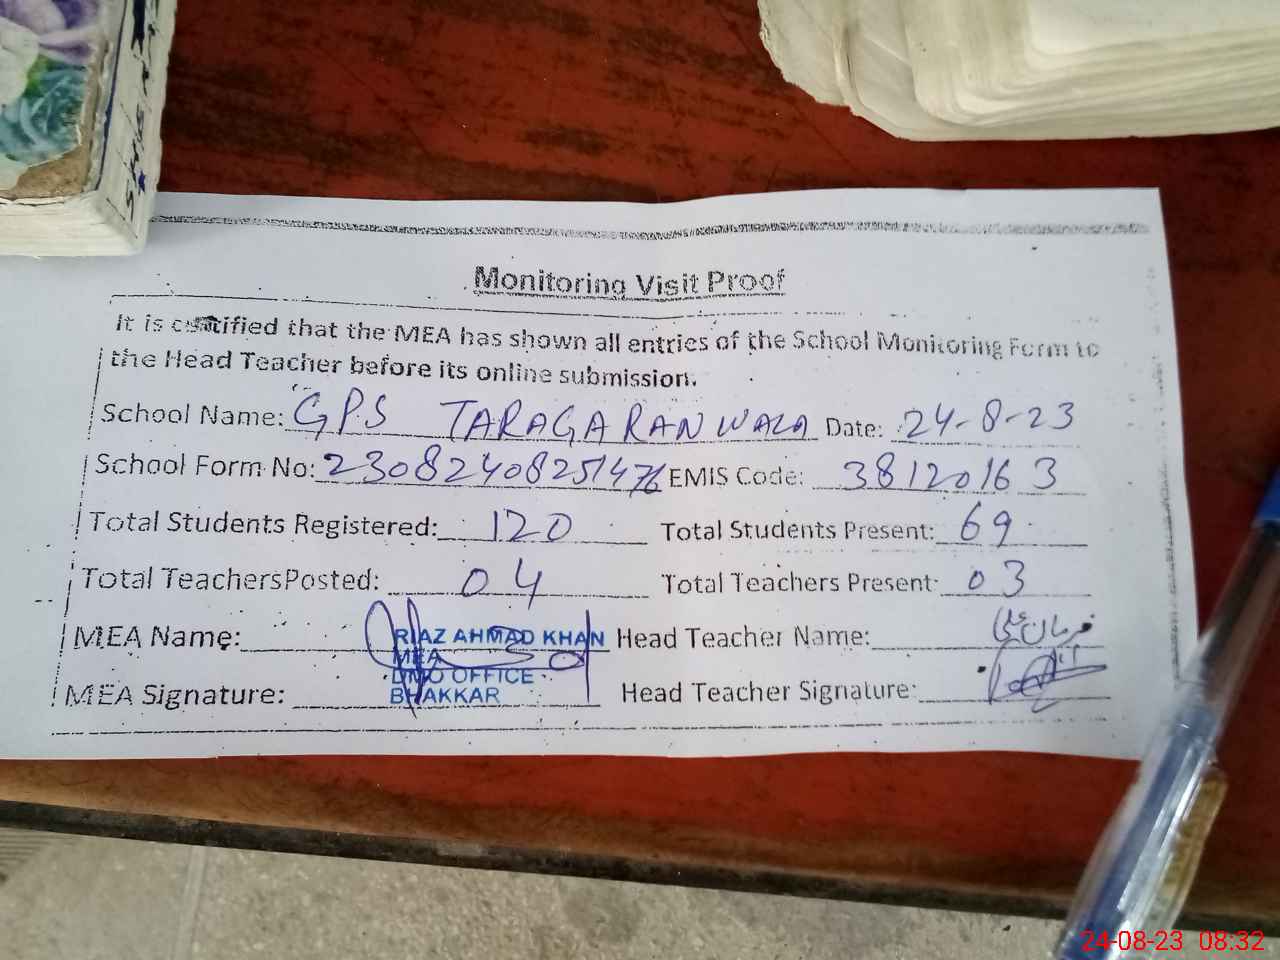 Monitoring Visit Proof
It is certified that the MEA has shown all entries of the School Monitoring Form to
the Head Teacher before its online submission.
School Name: GPS TARAGARANWALA Date: 24-8-23
School Form No: 23082408251476 EMIS Code: 38120163
Total Students Registered: 120 Total Students Present: 69
Total Teachers Posted: 04 Total Teachers Present: 03
MEA Name: RIAZ AHMAD KHAN Head Teacher Name:
MEA
DMO OFFICE
MEA Signature: BHAKKAR Head Teacher Signature:
24-08-23 08:32